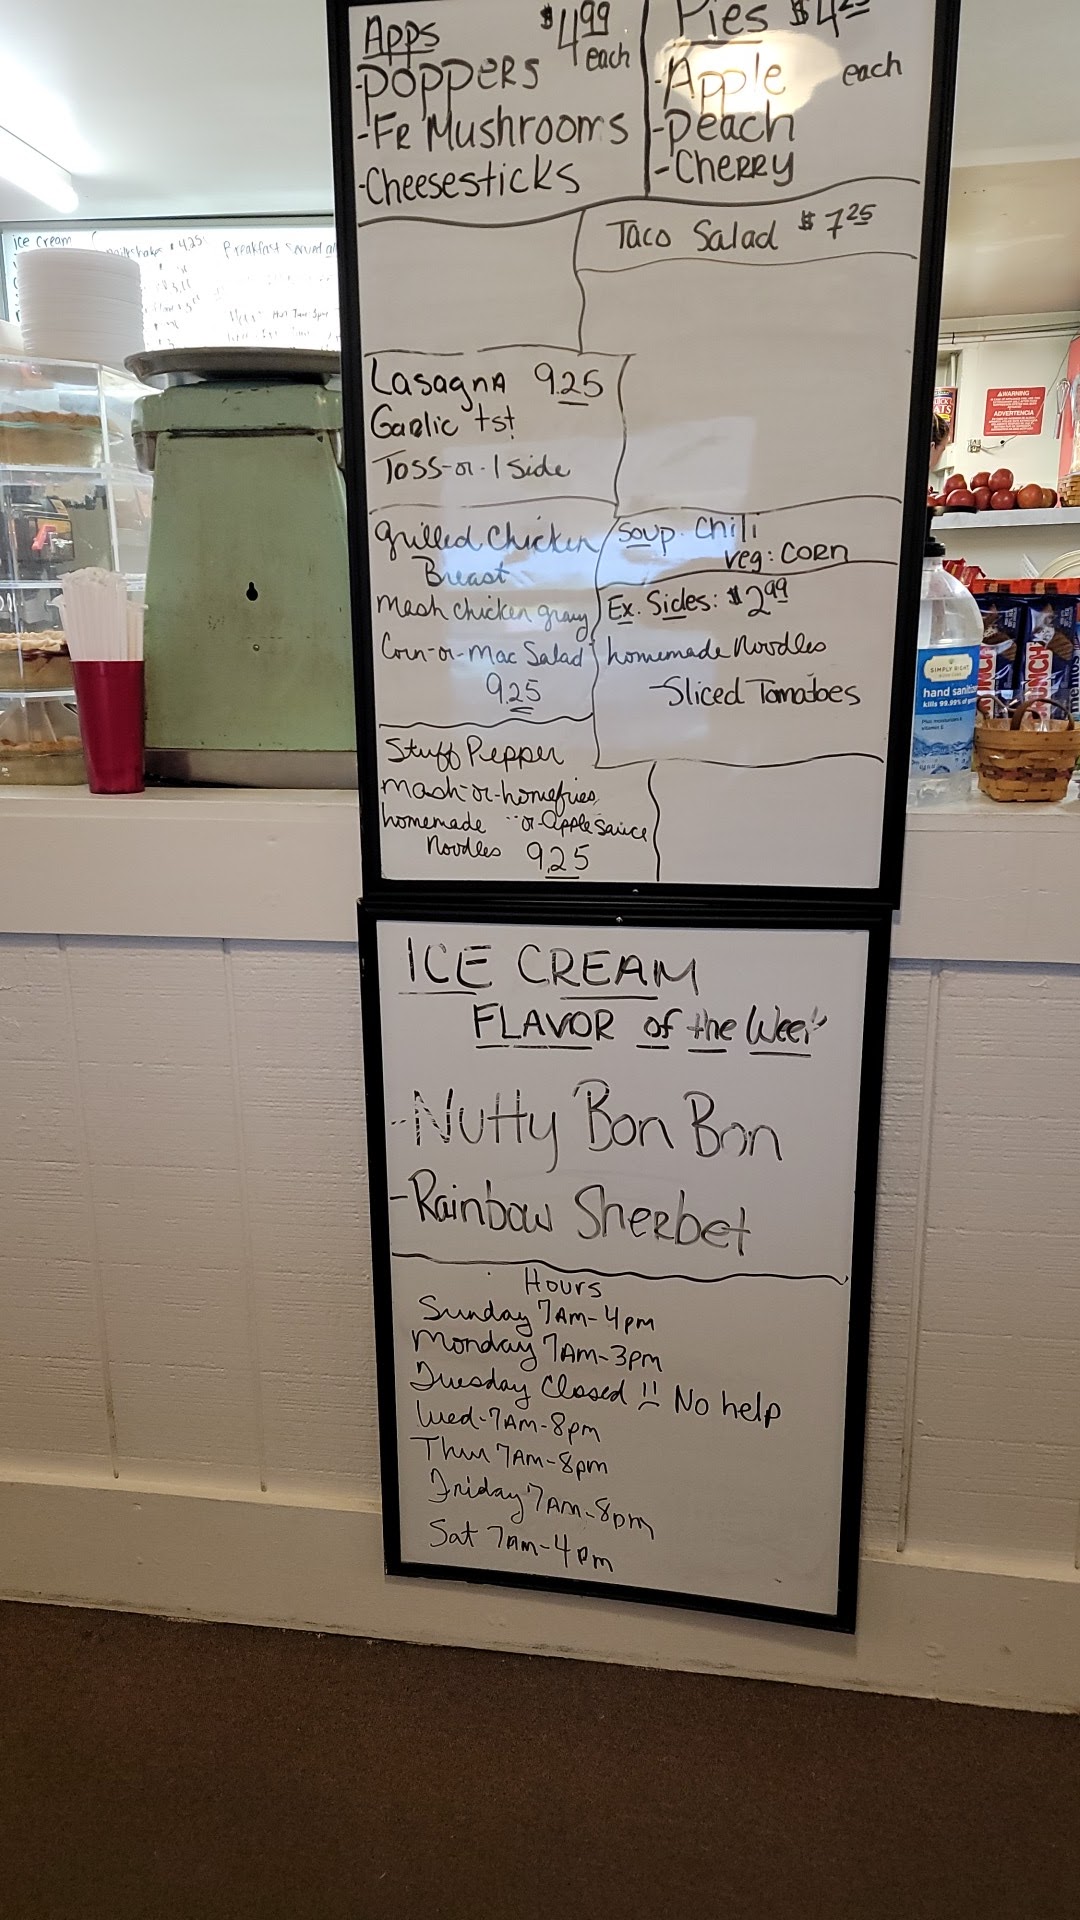 Apps $4.99
each
-Poppers
-Fr Mushrooms
-Cheesesticks
Pies $4.25
each
-Apple
-Peach
-Cherry
Taco Salad $7.25
Lasagna 9.25
Garlic tst
Toss-or-1 side
Grilled Chicken
Breast
Mash chicken gravy
Corn-or-Mac Salad
9.25
Soup. Chili
Veg: Corn
Ex. Sides: $2.99
homemade Noodles
-Sliced Tomatoes
Stuff Pepper
Mash-or-homefries
homemade "or-Applesauce
Noodles 9.25
ICE CREAM
FLAVOR of the Week
-Nutty Bon Bon
-Rainbow Sherbet
Hours
Sunday 7AM-4pm
Monday 7AM-3pm
Tuesday Closed !! No help
Wed-7AM-8pm
Thur 7AM-8pm
Friday 7AM-8pm
Sat 7am-4pm
Ice Cream
Milkshakes $4.25
Breakfast Served
WARNING
ADVERTENCIA
SIMPLY RIGHT
hand sanitiz
kills 99.99% of
CRUNCH